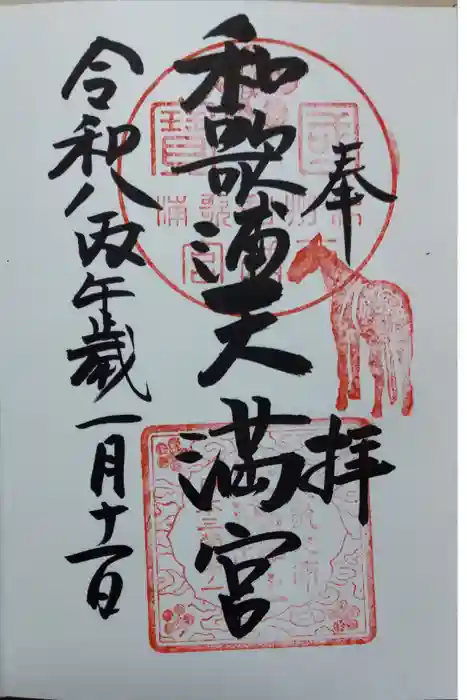 奉拝
和歌浦天満宮
令和八丙午歳一月十一日